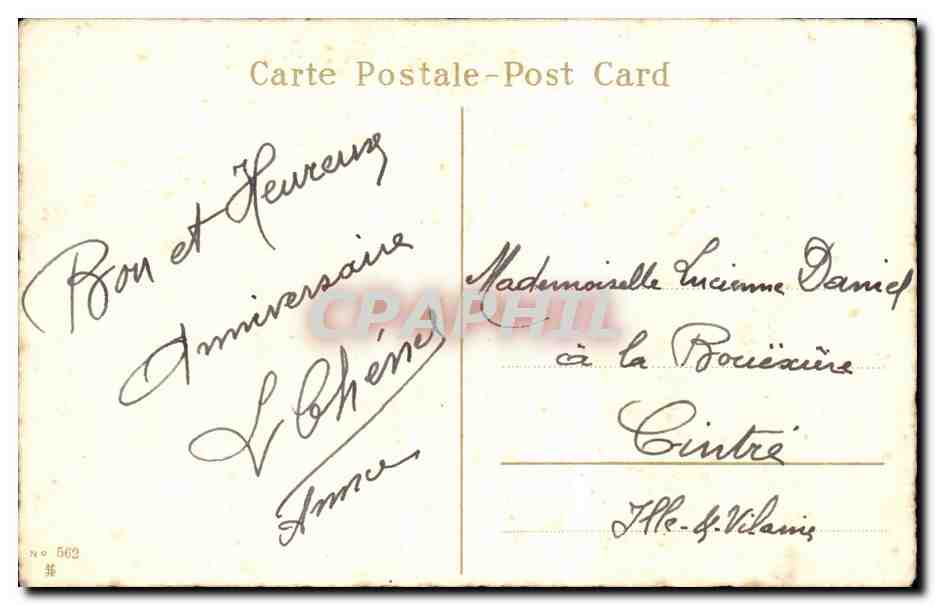 Carte Postale-Post Card
Bon et Heureux
Anniversaire
L Chénel
Mademoiselle Lucienne Daniel
à la Bouëxière
Cintré
Ille-&-Vilaine
CPAPHIL
No 562